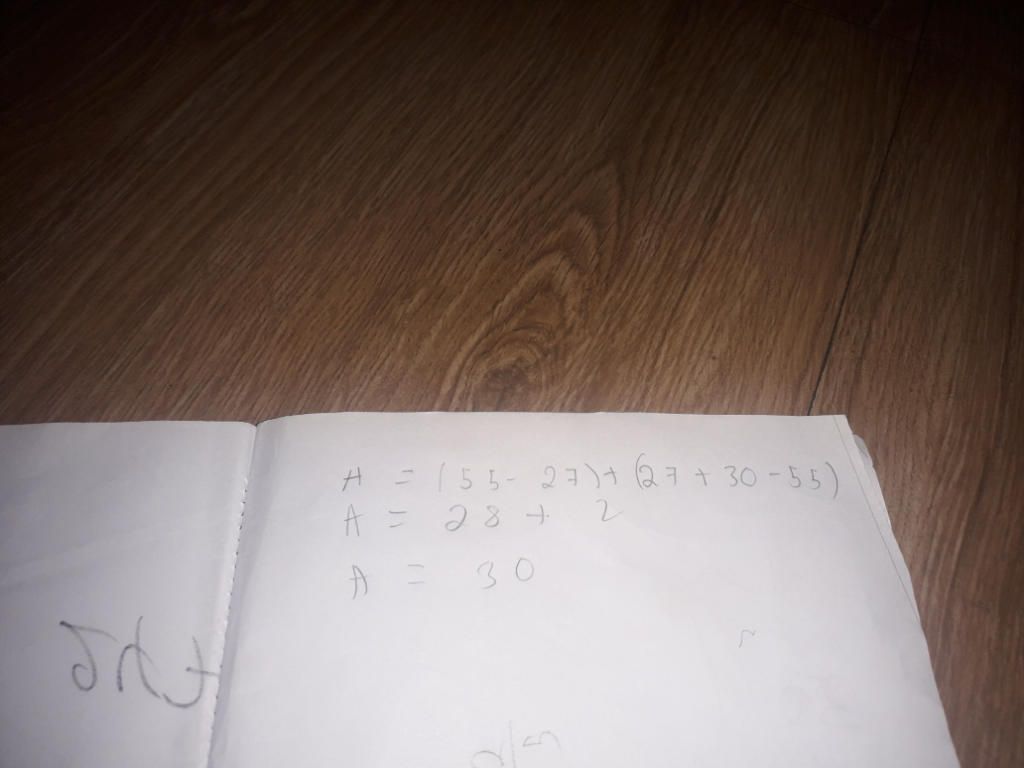 A = (55 - 27) + (27 + 30 - 55)
A = 28 + 2
A = 30